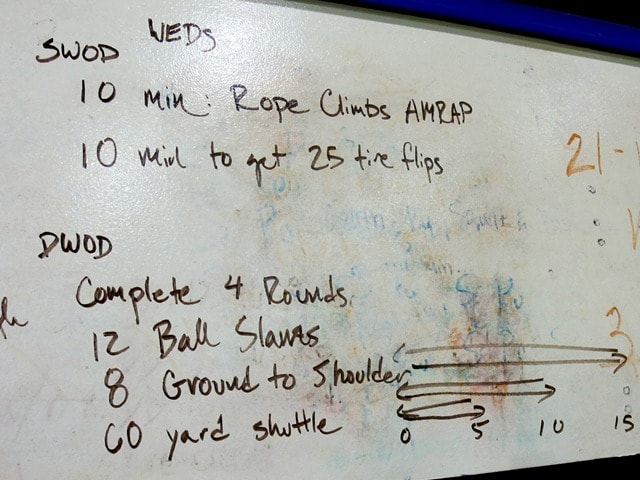 WEDS
SWOD
10 min: Rope Climbs AMRAP
10 min to get 25 tire flips
21-
DWOD
Complete 4 Rounds
12 Ball Slams
3
8 Ground to Shoulder
60 yard shuttle
0 5 10 15